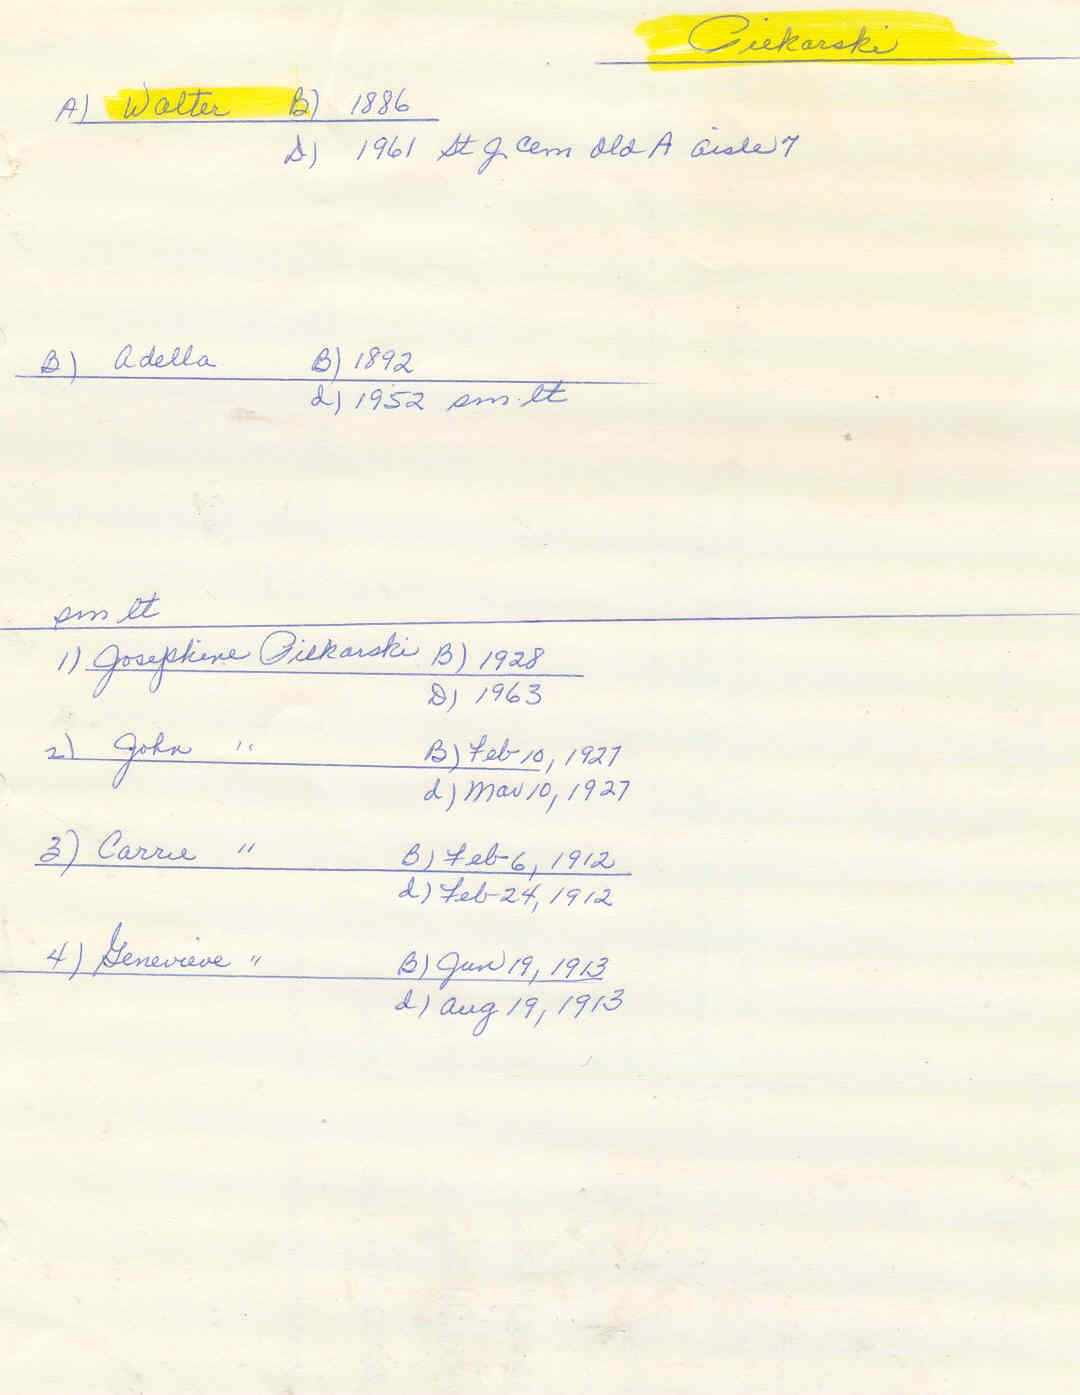 Piekarski
A) Walter B) 1886
D) 1961 St J. Cem Old A aisle 7
B) Adella B) 1892
d) 1952 sm lt
sm lt
1) Josephine Piekarski B) 1928
D) 1963
2) John " B) Feb 10, 1927
d) Mar 10, 1927
3) Carrie " B) Feb 6, 1912
d) Feb 24, 1912
4) Genevieve " B) Jun 19, 1913
d) Aug 19, 1913